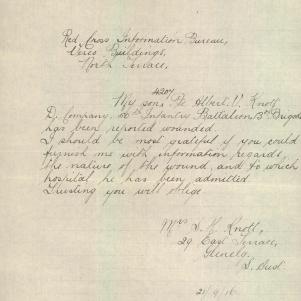 Red Cross Information Bureau,
Verco Buildings,
North Terrace,
4207
My son, Pte Albert V. Knott
D. Company, 50th Infantry Battalion, 13th Brigade
has been reported wounded.
I should be most grateful if you could
furnish me with information regards
the nature of the wound, and to which
hospital he has been admitted.
Trusting you will oblige
Mrs S. H. Knott,
29 East Terrace,
Glenelg.
S. Aust
21/9/16